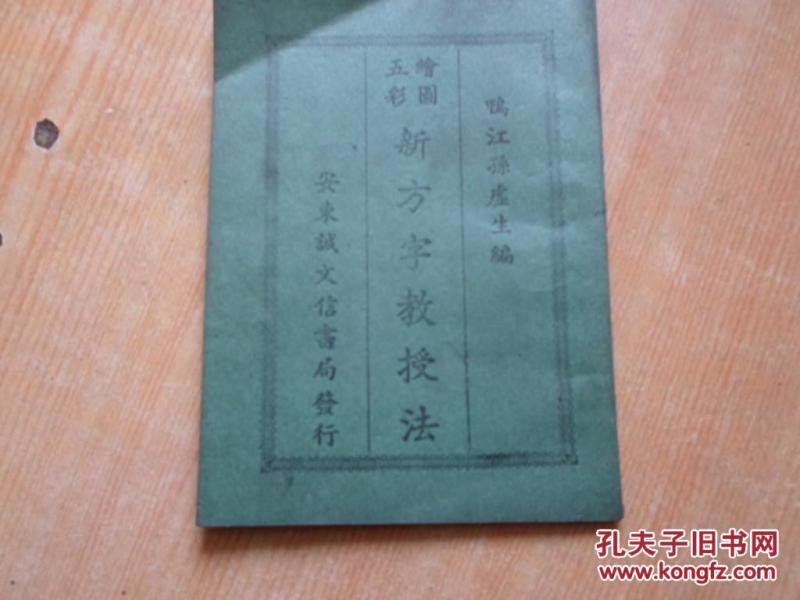 鴨江孫虛生編
繪圖
五彩
新方字教授法
安東誠文信書局發行
孔夫子旧书网
www.kongfz.com